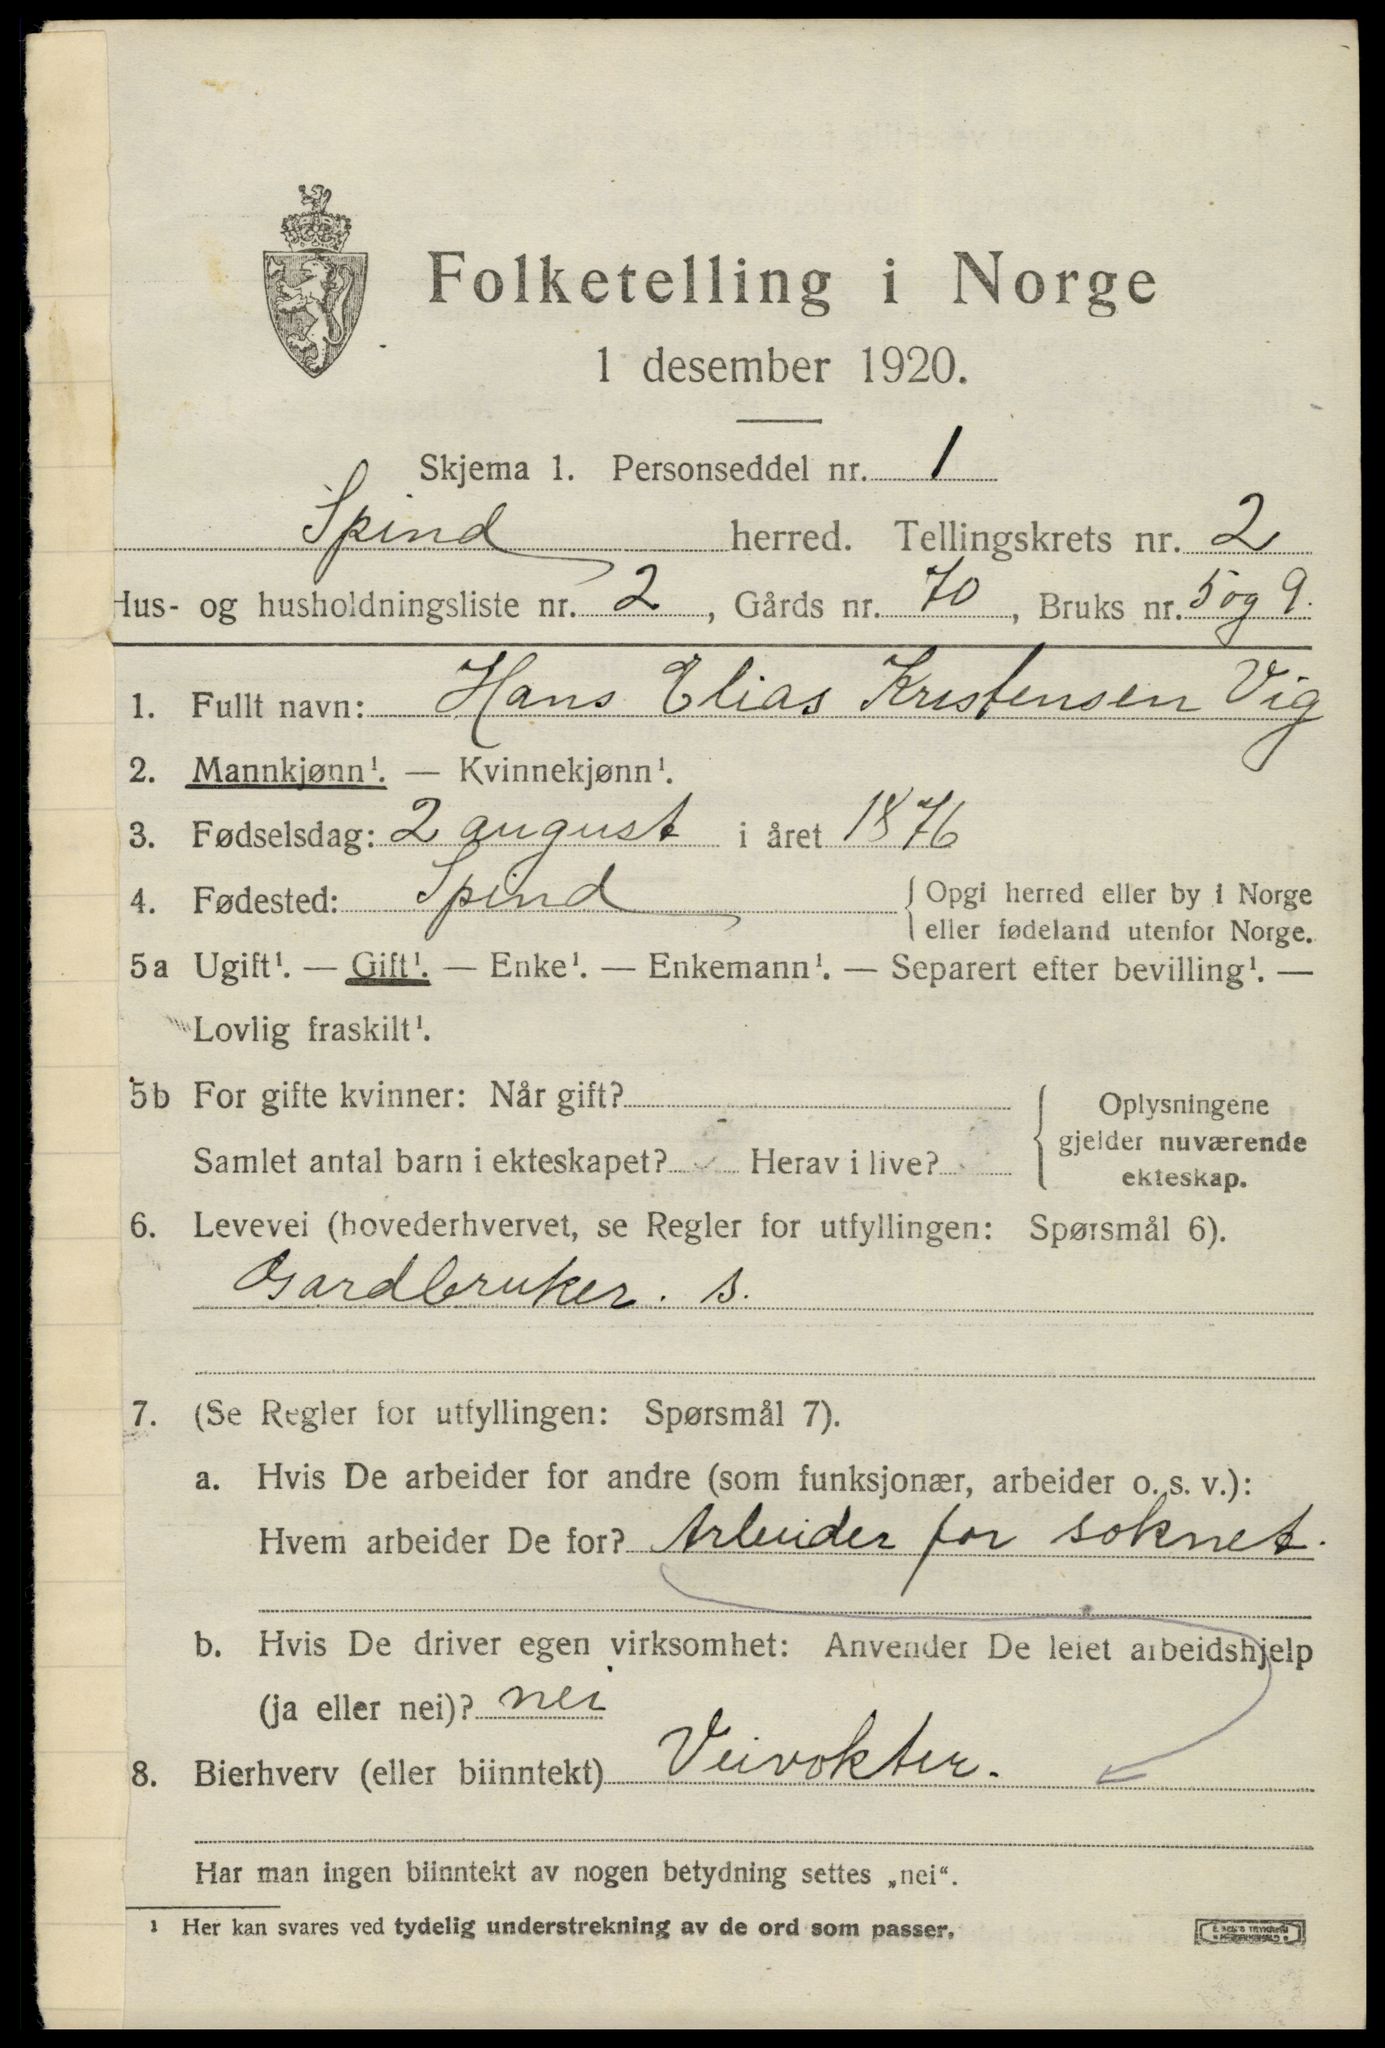 Folketelling i Norge
1 desember 1920.
Skjema 1. Personseddel nr. 1
Spind herred. Tellingskrets nr. 2
Hus- og husholdningsliste nr. 2, Gårds nr. 70, Bruks nr. 5 og 9.
1. Fullt navn: Hans Elias Kristensen Vig
2. Mannkjønn¹. — Kvinnekjønn¹.
3. Fødselsdag: 2 august i året 1876
4. Fødested: Spind { Opgi herred eller by i Norge
eller fødeland utenfor Norge.
5a Ugift¹. — Gift¹. — Enke¹. — Enkemann¹. — Separert efter bevilling¹. —
Lovlig fraskilt¹.
5b For gifte kvinner: Når gift? { Oplysningene
gjelder nuværende
Samlet antal barn i ekteskapet? Herav i live?
ekteskap.
6. Levevei (hovederhvervet, se Regler for utfyllingen: Spørsmål 6).
Gardbruker. s.
7. (Se Regler for utfyllingen: Spørsmål 7).
a. Hvis De arbeider for andre (som funksjonær, arbeider o. s. v.):
Hvem arbeider De for? Arbeider for soknet.
b. Hvis De driver egen virksomhet: Anvender De leiet arbeidshjelp
(ja eller nei)? nei
8. Bierhverv (eller biinntekt) Veivokter.
Har man ingen biinntekt av nogen betydning settes „nei“.
¹ Her kan svares ved tydelig understrekning av de ord som passer.